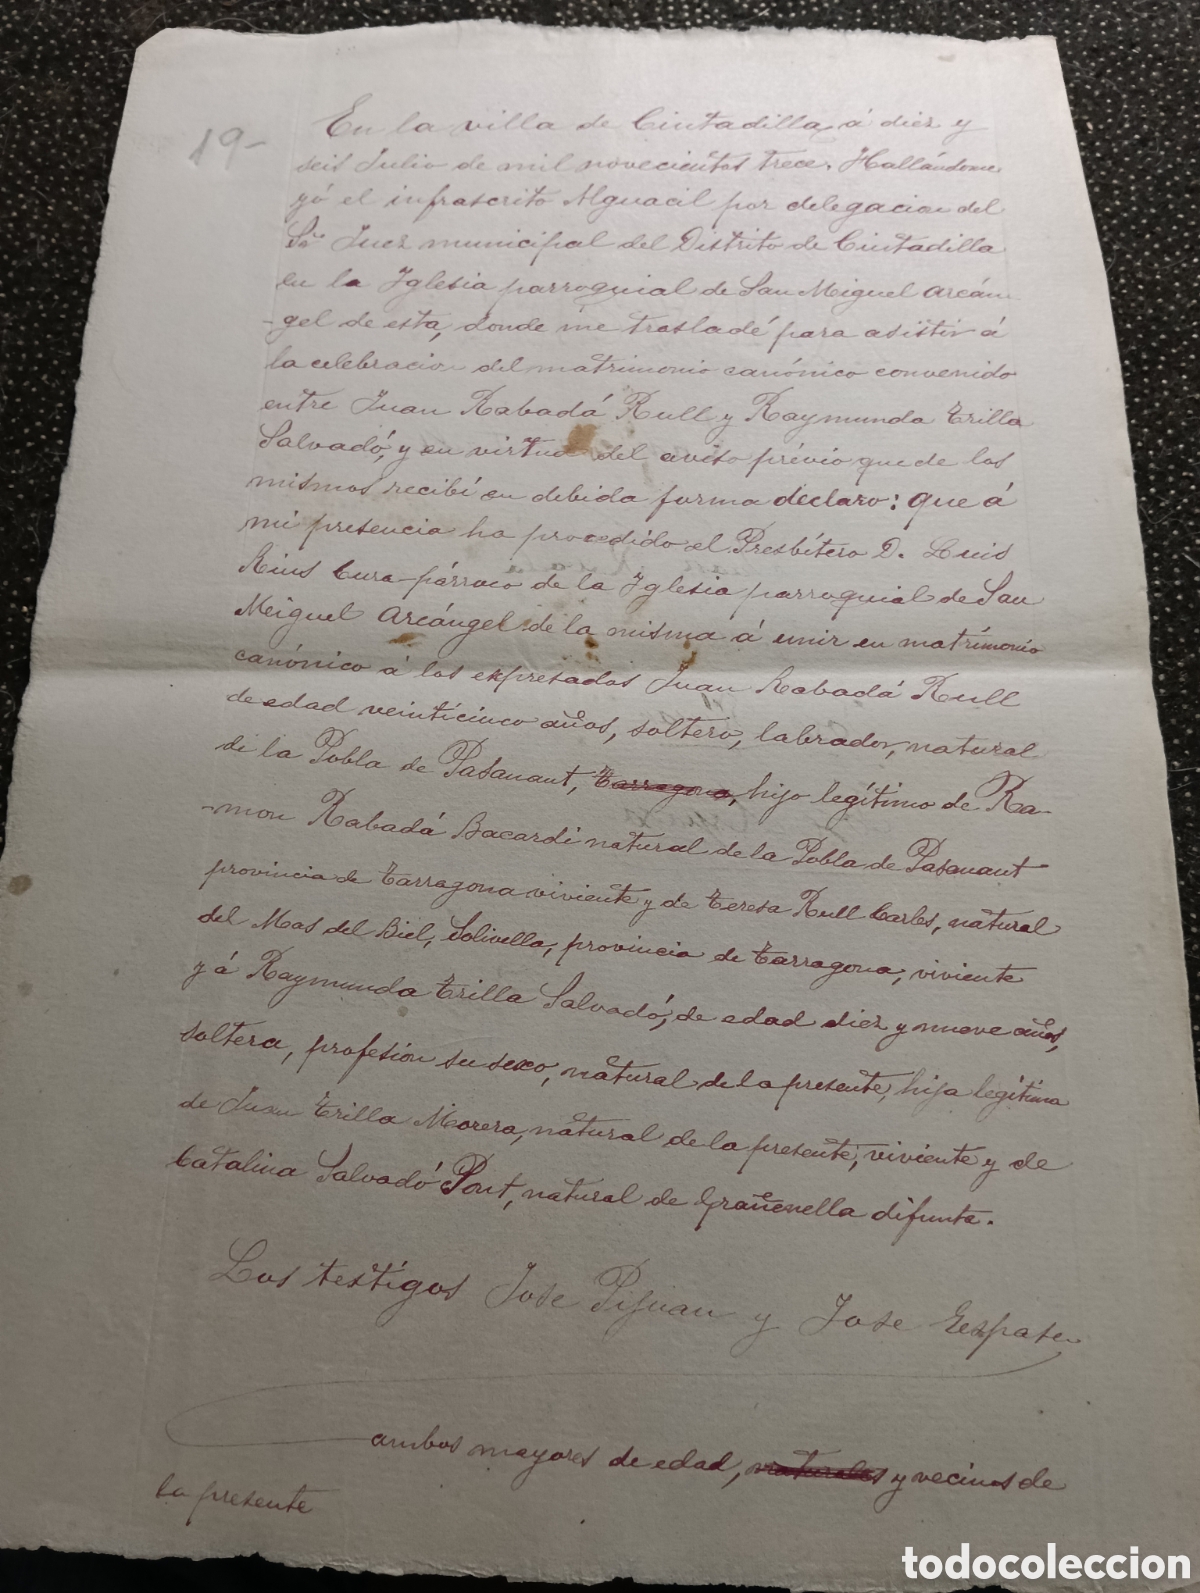 19-
En la villa de Ciutadilla, á diez y
seis Julio de mil novecientos trece. Hallándome
yó el infrascrito Alguacil por delegacion del
Sor Juez municipal del Distrito de Ciutadilla
en la Iglesia parroquial de San Meiguel Arcán-
-gel de esta, donde me trasladé para asistir á
la celebracion del matrimonio canónico convenido
entre Juan Rabadá Rull y Raymunda Trilla
Salvadó, y en virtud del aviso prévio que de los
mismos recibí en debida forma declaro: que á
mi presencia ha procedido el Presbítero D. Luis
Rius Cura-párroco de la Iglesia parroquial de San
Meiguel Arcángel de la misma á unir en matrímonio
canónico á los expresados Juan Rabadá Rull
de edad veinticinco años, soltero, labrador, natural
de la Pobla de Pasanant, Tarragona, hijo legítimo de Ra-
-mon Rabadá Bacardi natural de la Pobla de Pasanant
provincia de Tarragona viviente y de Teresa Rull Carles, natural
del Mas del Biel, Solivella, provincia de Tarragona, viviente
y á Raymunda Trilla Salvadó, de edad diez y nueve años,
soltera, profesión su sexo, natural de la presente, hija legítima
de Juan Trilla Morera, natural de la presente, viviente y de
Catalina Salvadó Pont, natural de Grañenella difunta.
Los testigos Jose Pijuan y Jose
ambos mayores de edad, naturales y vecinos de
la presente
todocoleccion